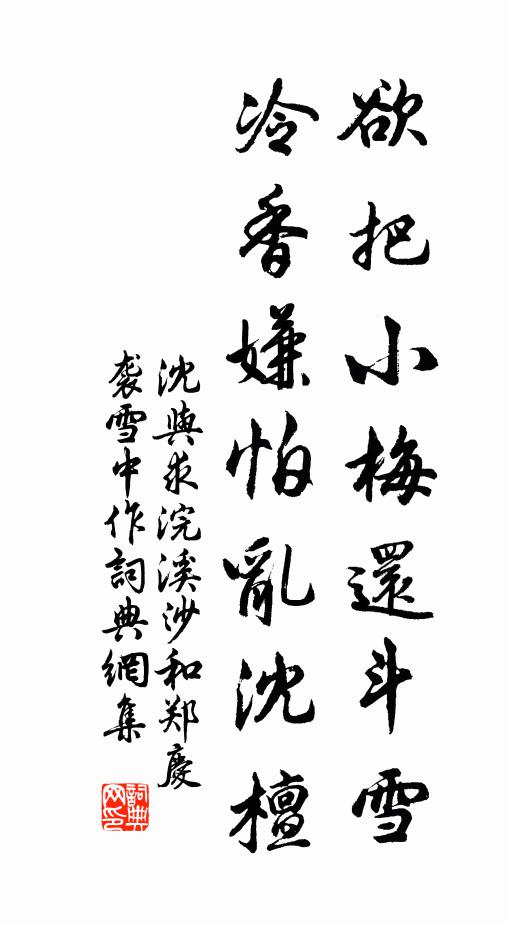 欲把小梅還斗雪
冷香嫌怕亂沈檀
沈與求浣溪沙和郑慶
袭雪中作詞典網集
詞典网印